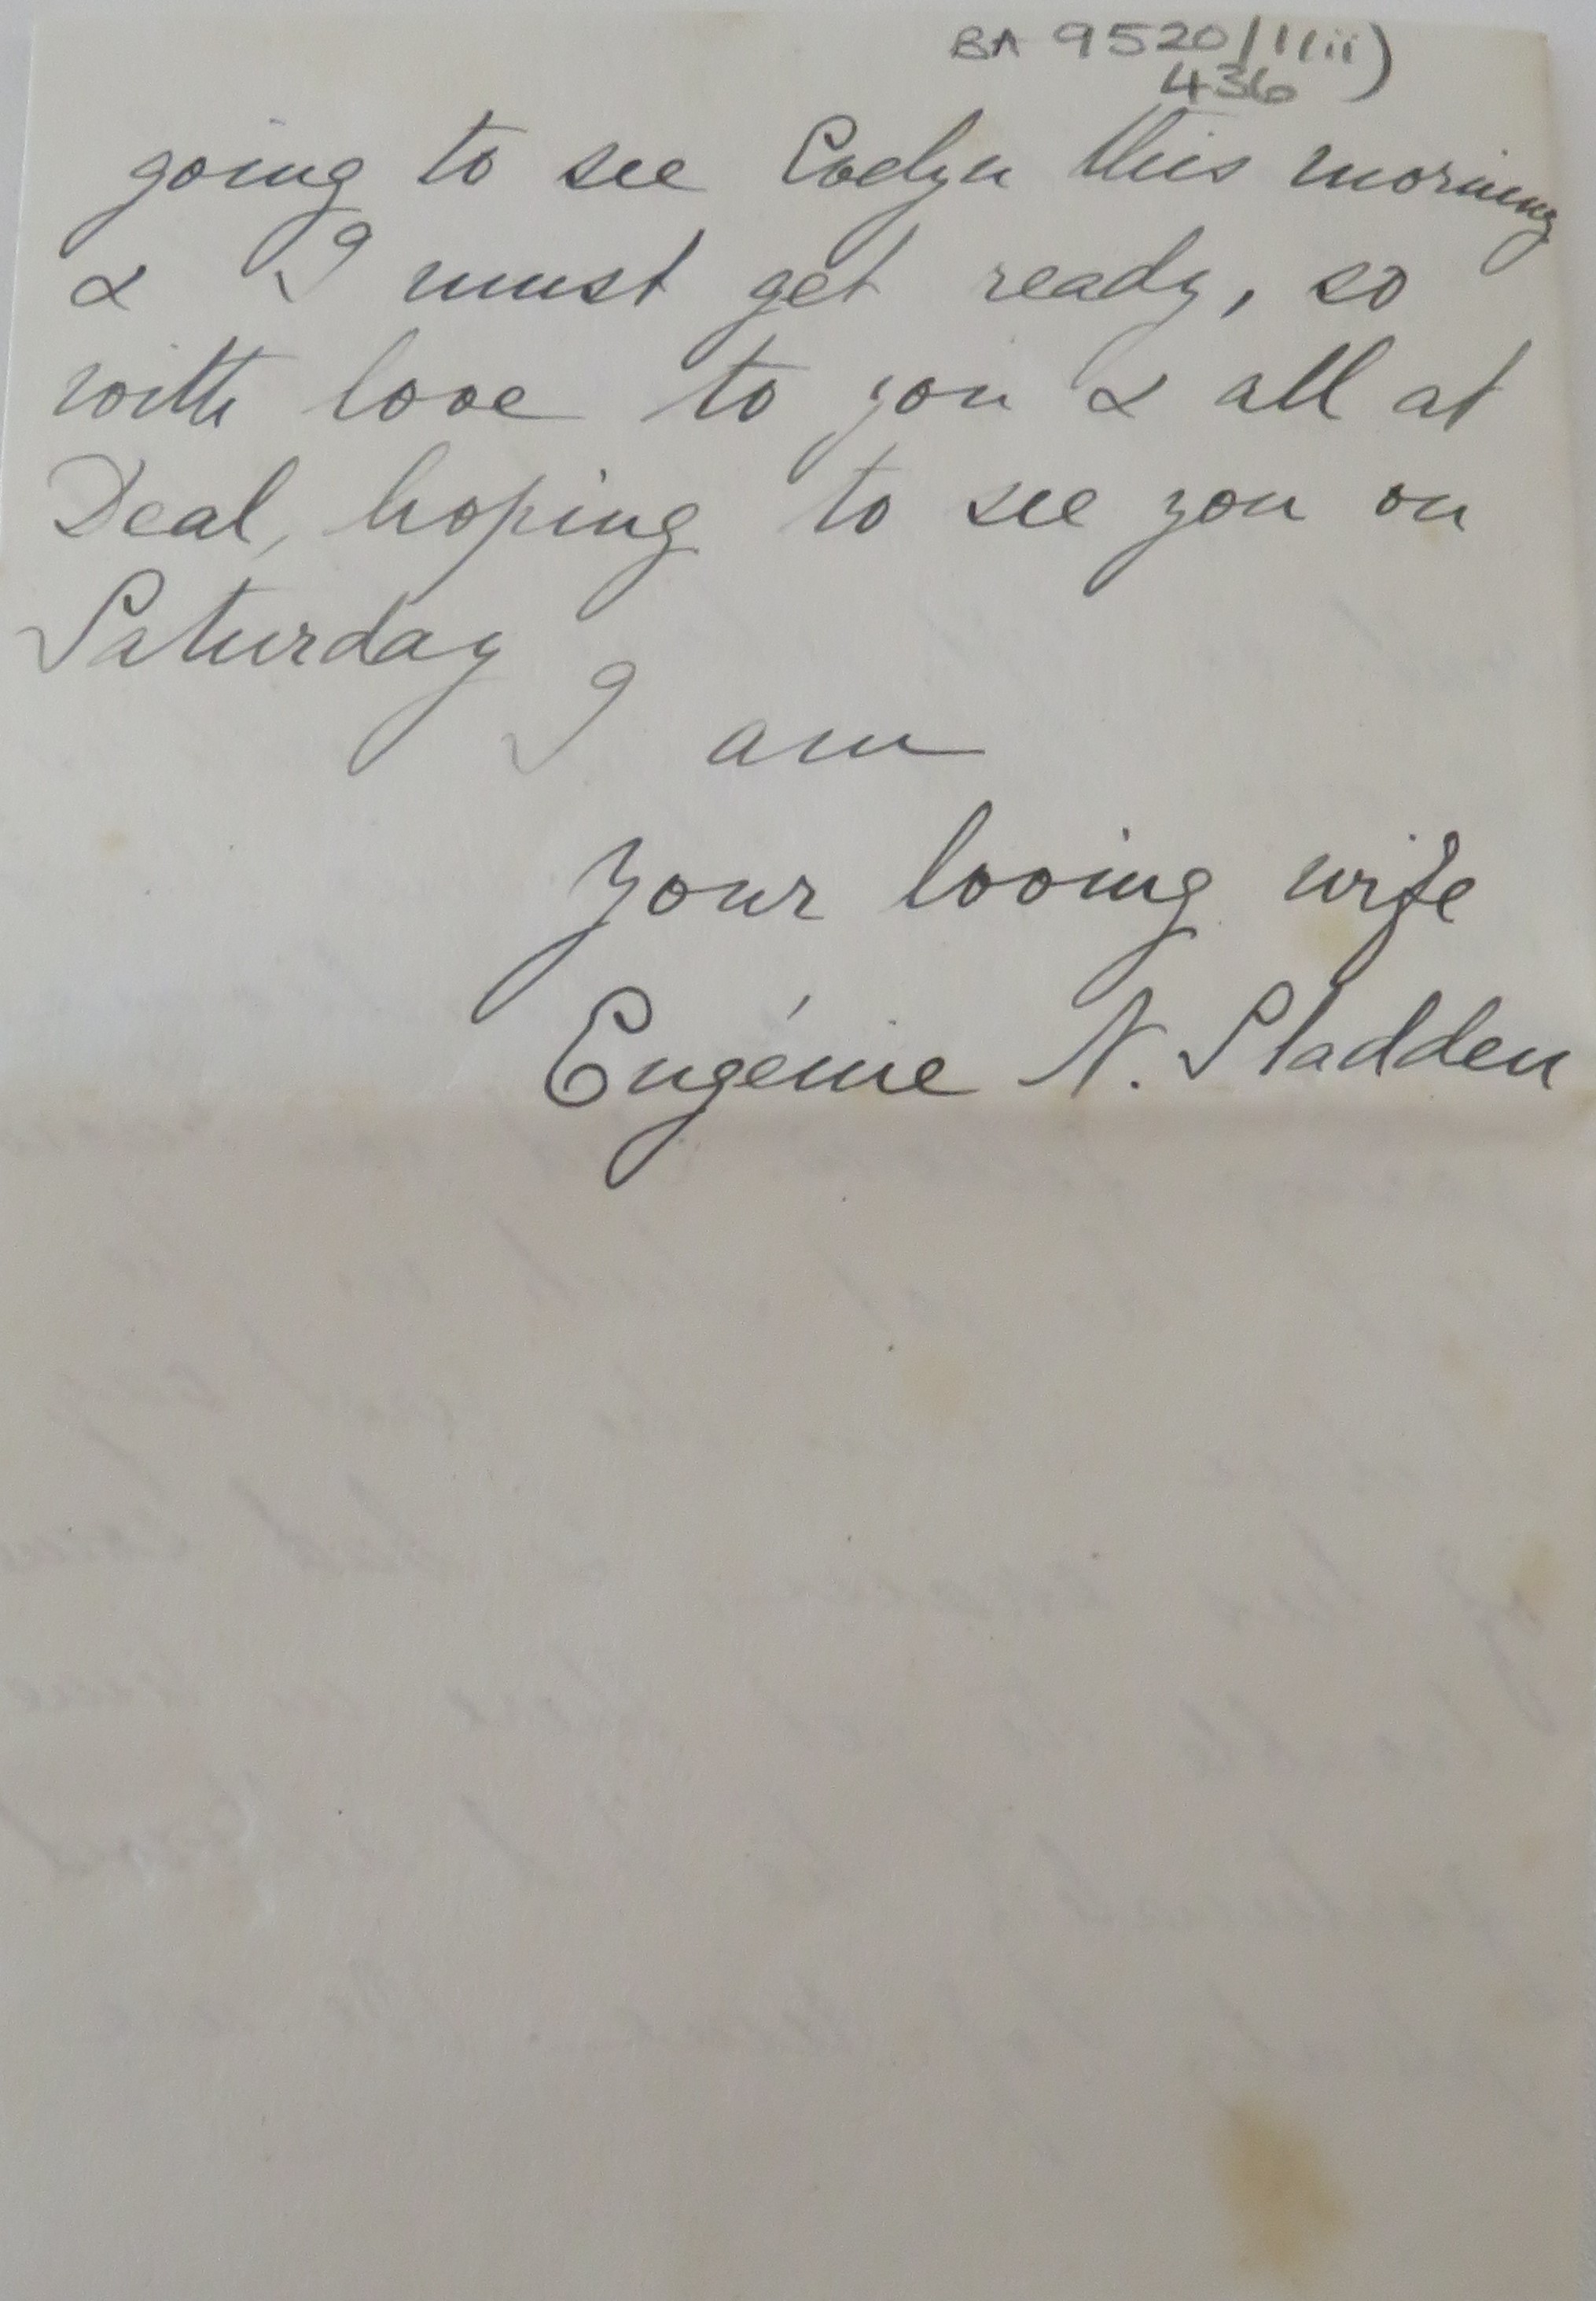 BA 9520/1(ii)
436
going to see Evelyn this morning
& I must get ready, so
with love to you & all at
Deal, hoping to see you on
Saturday
I am
Your loving wife
Eugénie N. Sladden